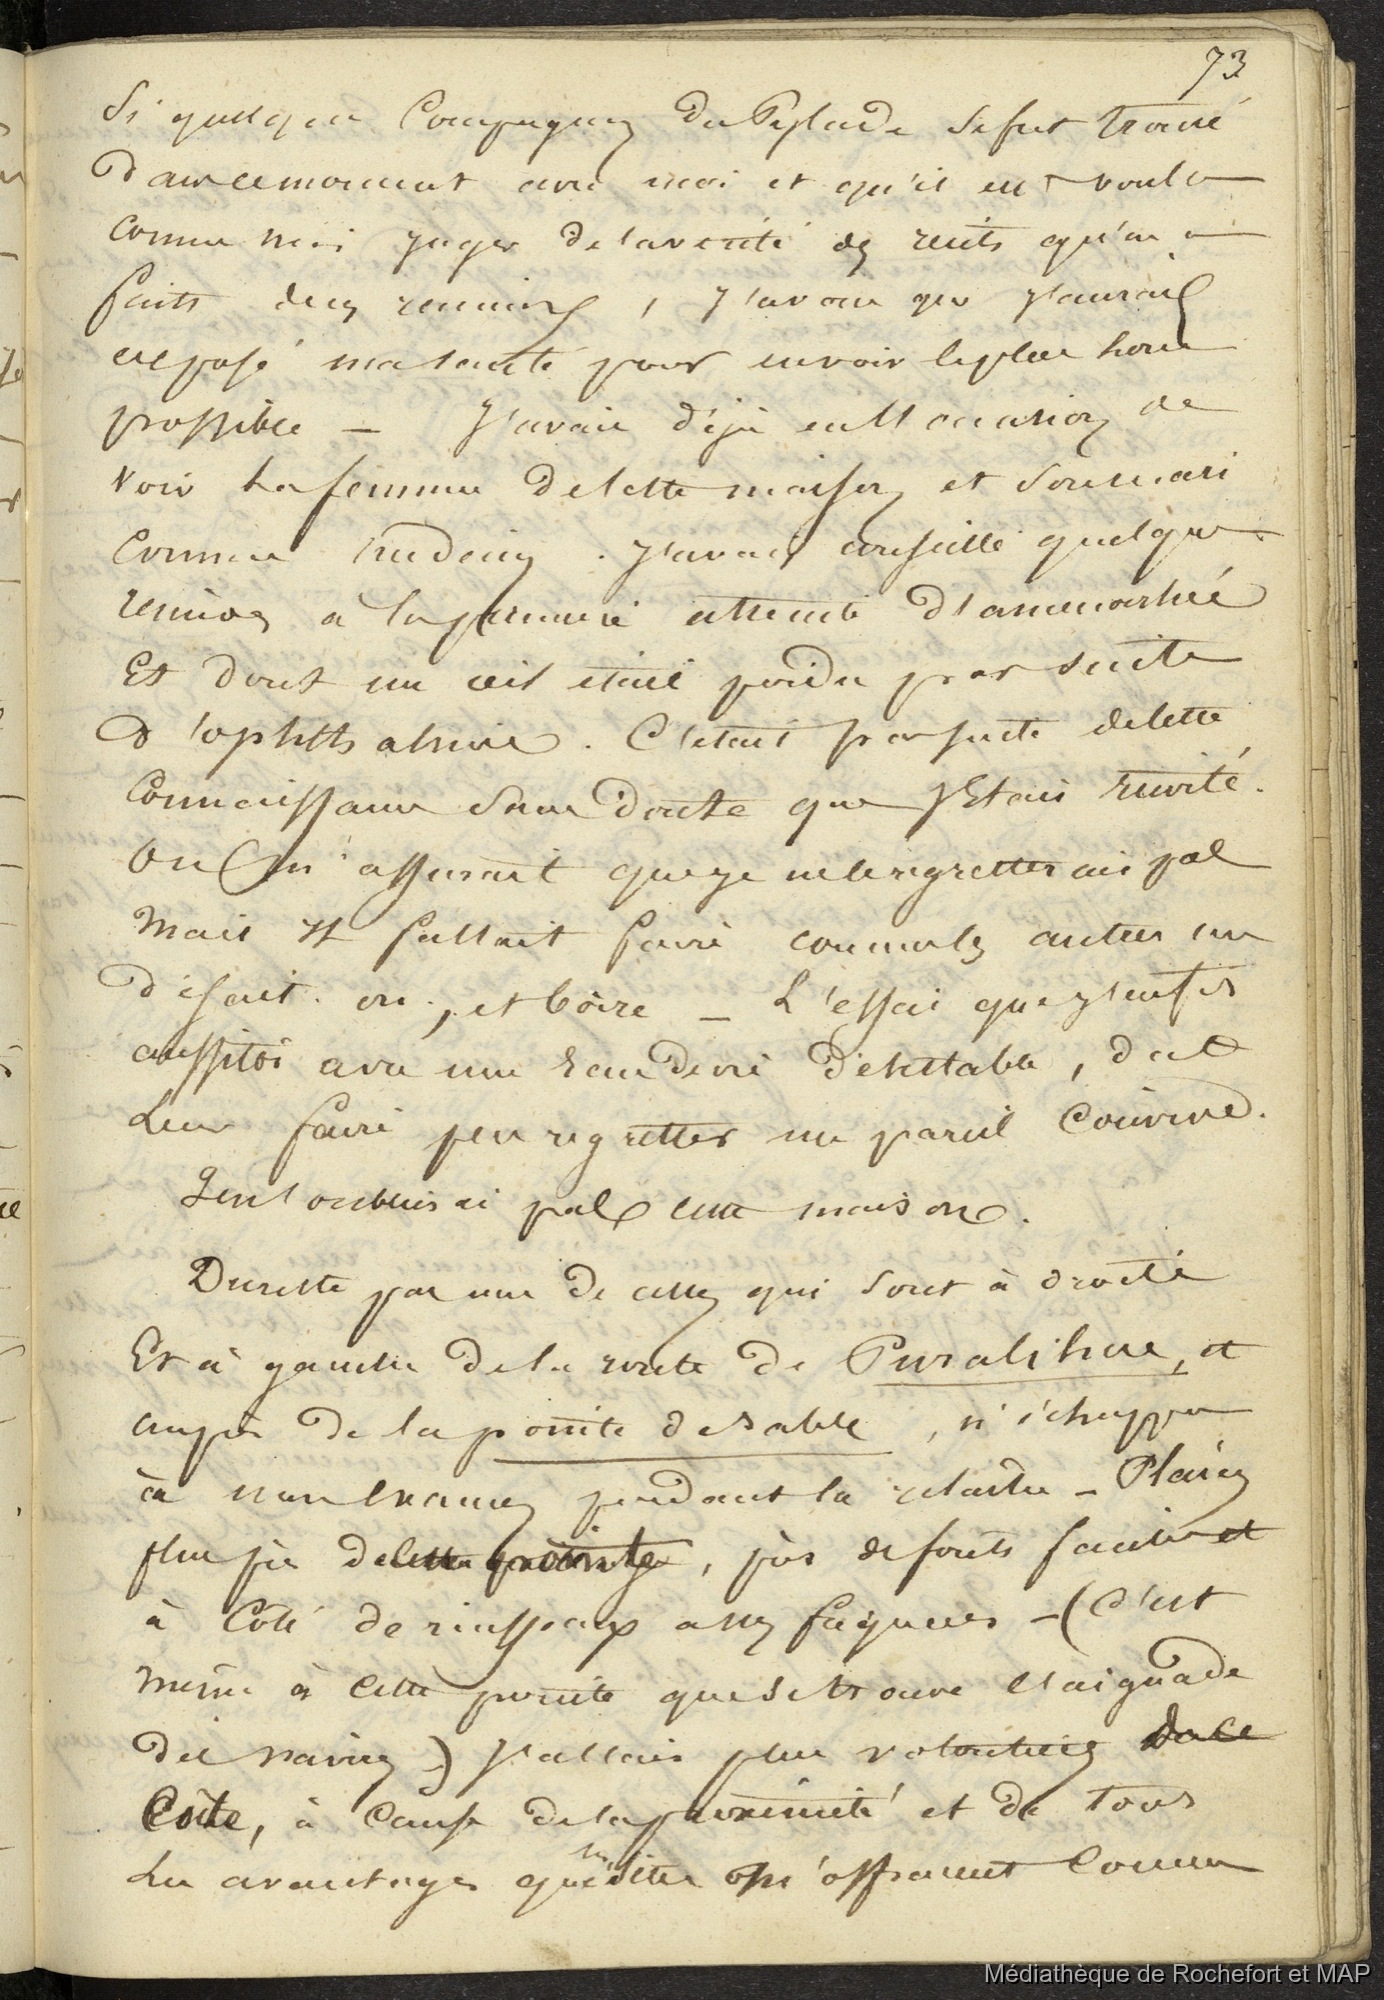 73
Si quelque Compagnon du Pylade se fut trouvé
dans ce moment avec moi et qu'il eut voulu
comme moi juger de la verité des recits qu'on a
faits de ces reunions, j'avoue que j'aurais
exposé ma santé pour en voir le plus
possible – J'avais déja eu l'occasion de
voir la femme de cette maison et son mari
comme medecin. j'avais conseillé quelques
remedes à la premiere atteinte d'amenorrhée
Et dont un oeil était perdu par suite
d'ophtthalmie. C'etait par suite de cette
Connaissance sans doute que j'Etais invité.
On m'assurait que je ne le regretterais pas
Mais Il fallait faire comme les autres me
disait-on, et boire – L'essai que j'en fis
aussitot avec une eau de vie détestable, dut
leur faire peu regretter un pareil convive.
Je n'oublierai pas cette maison.
Du reste pas une de celles qui sont à droite
Et à gauche de la route de
auprès de la pointe de sable, n'échappa
à mon examen pendant la relache – Placées
plus près de cette pointe, près de
à côté de ruisseaux assez – (C'est
même à cette pointe que se trouve l'aiguade
des navires) J'allais plus volontiers de ce
Coté, à cause de la proximité et de tous
les avantages m'offraient Comme
Médiathèque de Rochefort et MAP